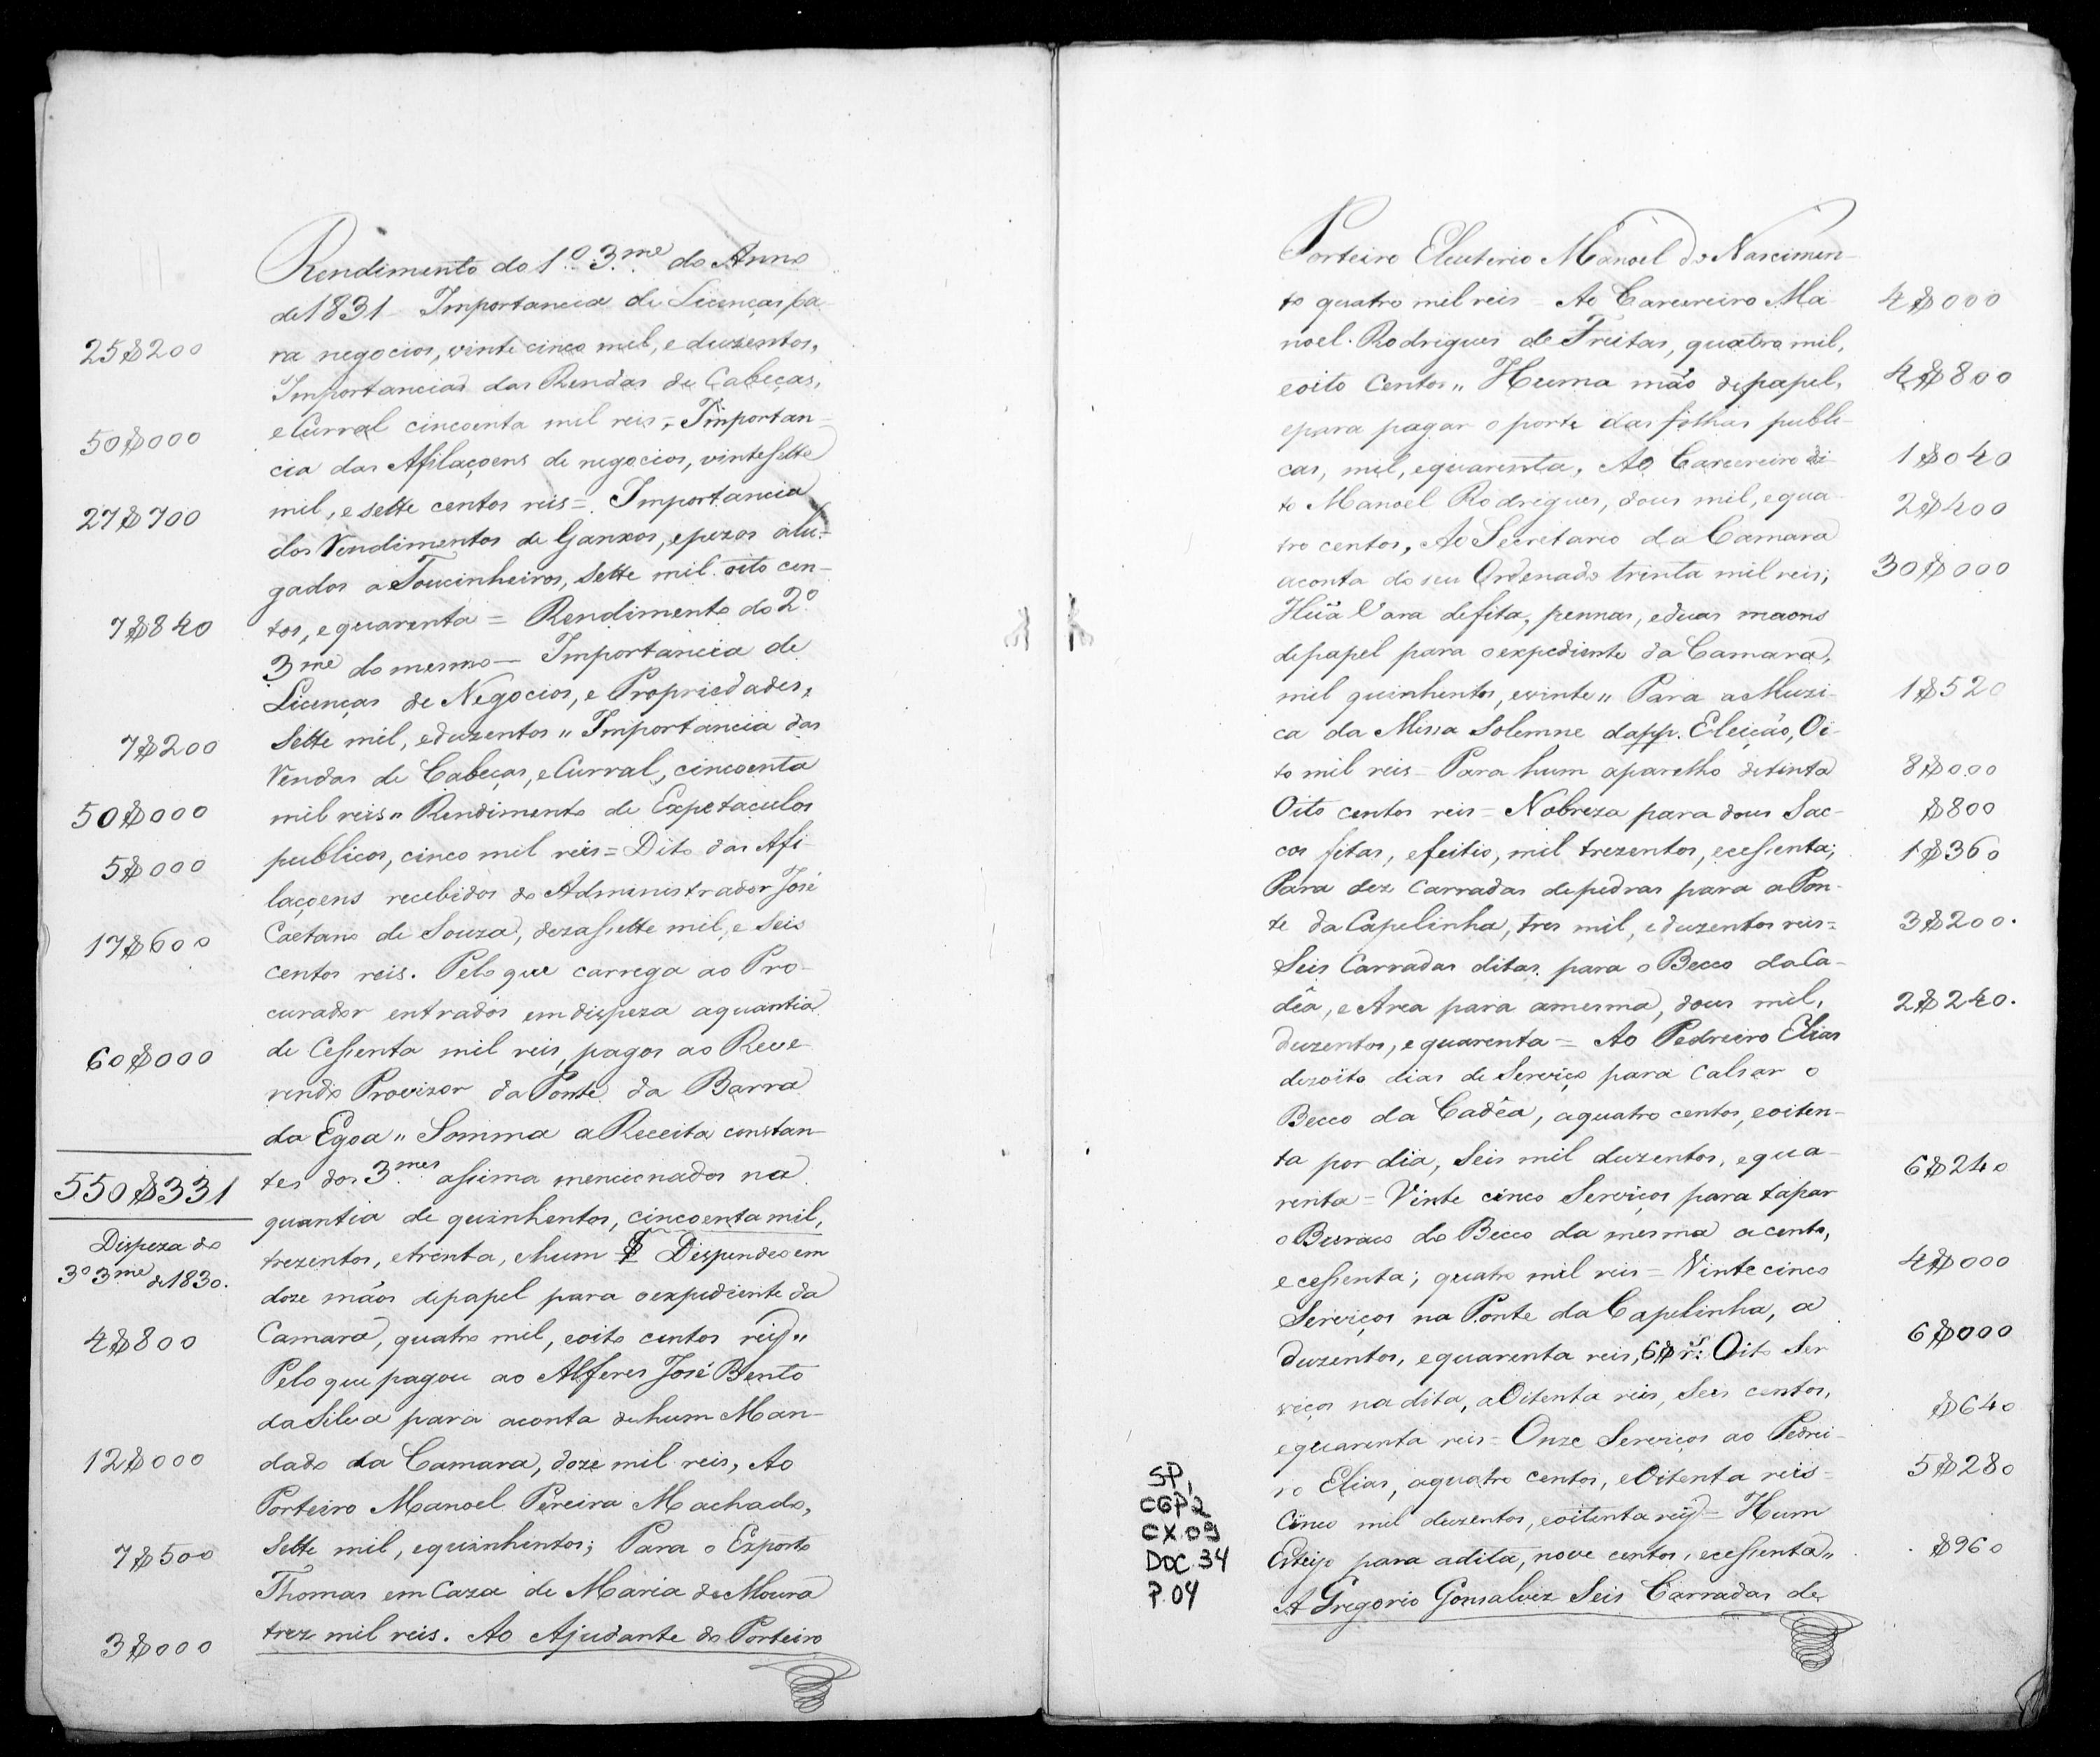 Rendimento do 1º 3.me do Anno
de 1831 - Importancia de Licenças pa-
25$200 ra negocios, vinte cinco mil, e duzentos,
Importancias das Rendas de Cabeças,
50$000 e Curral cincoenta mil reis = Importan-
cia das Afilaçoens de negocios, vintesette
27$700 mil, e sette centos reis = Importancia
dos Vendimentos de Ganxos, epezos alu-
gados a Toucinheiros, sette mil oito cen-
7$840 tos, e quarenta = Rendimento do 2º
3.me do mesmo - Importancia de
Licenças de Negocios, e Propriedades,
7$200 Sette mil, eduzentos " Importancia das
Vendas de Cabeças, e Curral, cincoenta
50$000 mil reis " Rendimento de Expetaculos
5$000 publicos, cinco mil reis = Dito das Afi-
laçoens recebidos do Administrador José
17$600 Caetano de Souza, dezasette mil, e seis
centos reis. Pelo que carrega ao Pro-
curador entrados em dispeza aquantia
60$000 de Cessenta mil reis, pagos ao Reve-
rendo Provizor da Ponte da Barra
da Egoa " Somma a Receita constan-
550$331 tes dos 3.mes assima mencionados na
quantia de quinhentos, cincoenta mil,
Dispeza do
3º 3.me de 1830.
trezentos, etrenta, ehum $ Dispendeo em
doze mãos depapel para oexpediente da
4$800 Camara, quatro mil, eoito centos reis "
Pelo que pagou ao Alferes José Bento
da Silva para aconta dehum Man-
12$000 dado da Camara, doze mil reis, Ao
Porteiro Manoel Pereira Machado,
7$500 Sette mil, equinhentos; Para o Exposto
Thomas em Caza de Maria de Moura
3$000 trez mil reis. Ao Ajudante do Porteiro
Porteiro Eleuterio Manoel do Nascimen-
to quatro mil reis - Ao Carcereiro Ma- 4$000
noel Rodrigues de Freitas, quatro mil,
eoito Centos " Huma mão depapel, 4$800
epara pagar o porte das folhas publi-
cas, mil, equarenta, Ao Carcereiro di- 1$040
to Manoel Rodrigues, dous mil, equa- 2$400
tro centos, Ao Secretario da Camara
aconta do seu Ordenado trinta mil reis; 30$000
Hũa Vara defita, pennas, eduas maons
depapel para oexpediente da Camara,
mil quinhentos, evinte " Para a Muzi- 1$520
ca da Missa Solemne dapp. Eleição, Oi-
to mil reis - Para hum aparelho detinta 8$000
Oito centos reis = Nobreza para dous Sac- $800
cos fitas, efeitio, mil trezentos, ecessenta; 1$360
Para dez Carradas depedras para a Pon-
te da Capelinha, tres mil, eduzentos reis = 3$200.
Seis Carradas ditas para o Becco da Ca-
dêa, e Area para amesma, dous mil, 2$240.
duzentos, e quarenta = Ao Pedreiro Elias
dezoito dias de Serviço para Calsar o
Becco da Cadêa, aquatro centos, eoiten-
ta por dia, Seis mil duzentos, equa- 6$240
renta = Vinte cinco Serviços para tapar
o Buraco do Becco da mesma acento,
ecessenta; quatro mil reis = Vinte cinco 4$000
Serviços na Ponte da Capelinha, a
duzentos, equarenta reis, 6$ rs: Oito Ser- 6$000
viços na dita, aOitenta reis, Seis centos, $640
equarenta reis = Onze Serviços ao Pedrei-
ro Elias, aquatro centos, eOitenta reis = 5$280
Cinco mil duzentos, eoitenta reis = Hum
Esteijo para adita, nove centos, ecessenta " $960
A Gregorio Gonsalvez Seis Carradas de
SP,
CGP2
CX.09
DOC.34
P.04